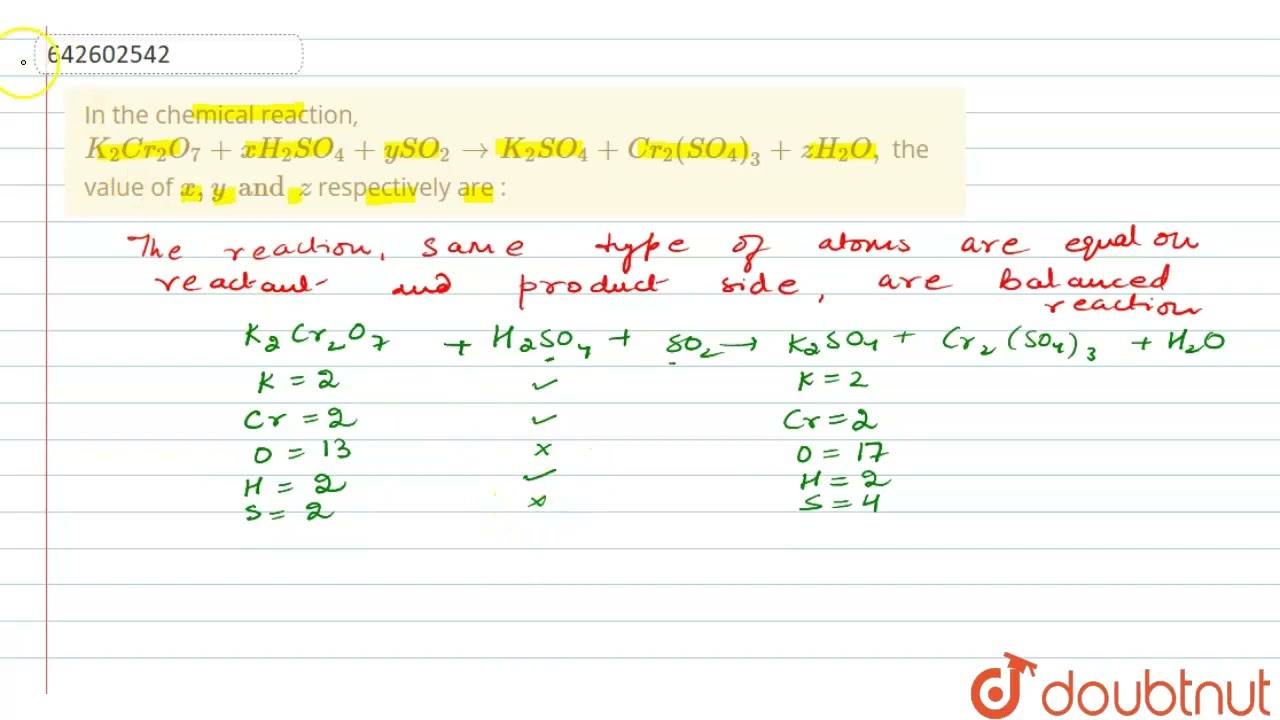 642602542
In the chemical reaction,
K₂Cr₂O₇ + xH₂SO₄ + ySO₂ → K₂SO₄ + Cr₂(SO₄)₃ + zH₂O, the
value of x, y and z respectively are :
The reaction, same type of atoms are equal on
reactant and product side, are balanced
reaction
K₂Cr₂O₇ + H₂SO₄ + SO₂ → K₂SO₄ + Cr₂(SO₄)₃ + H₂O
K = 2 ✓ K = 2
Cr = 2 ✓ Cr = 2
O = 13 × O = 17
H = 2 ✓ H = 2
S = 2 × S = 4
doubtnut